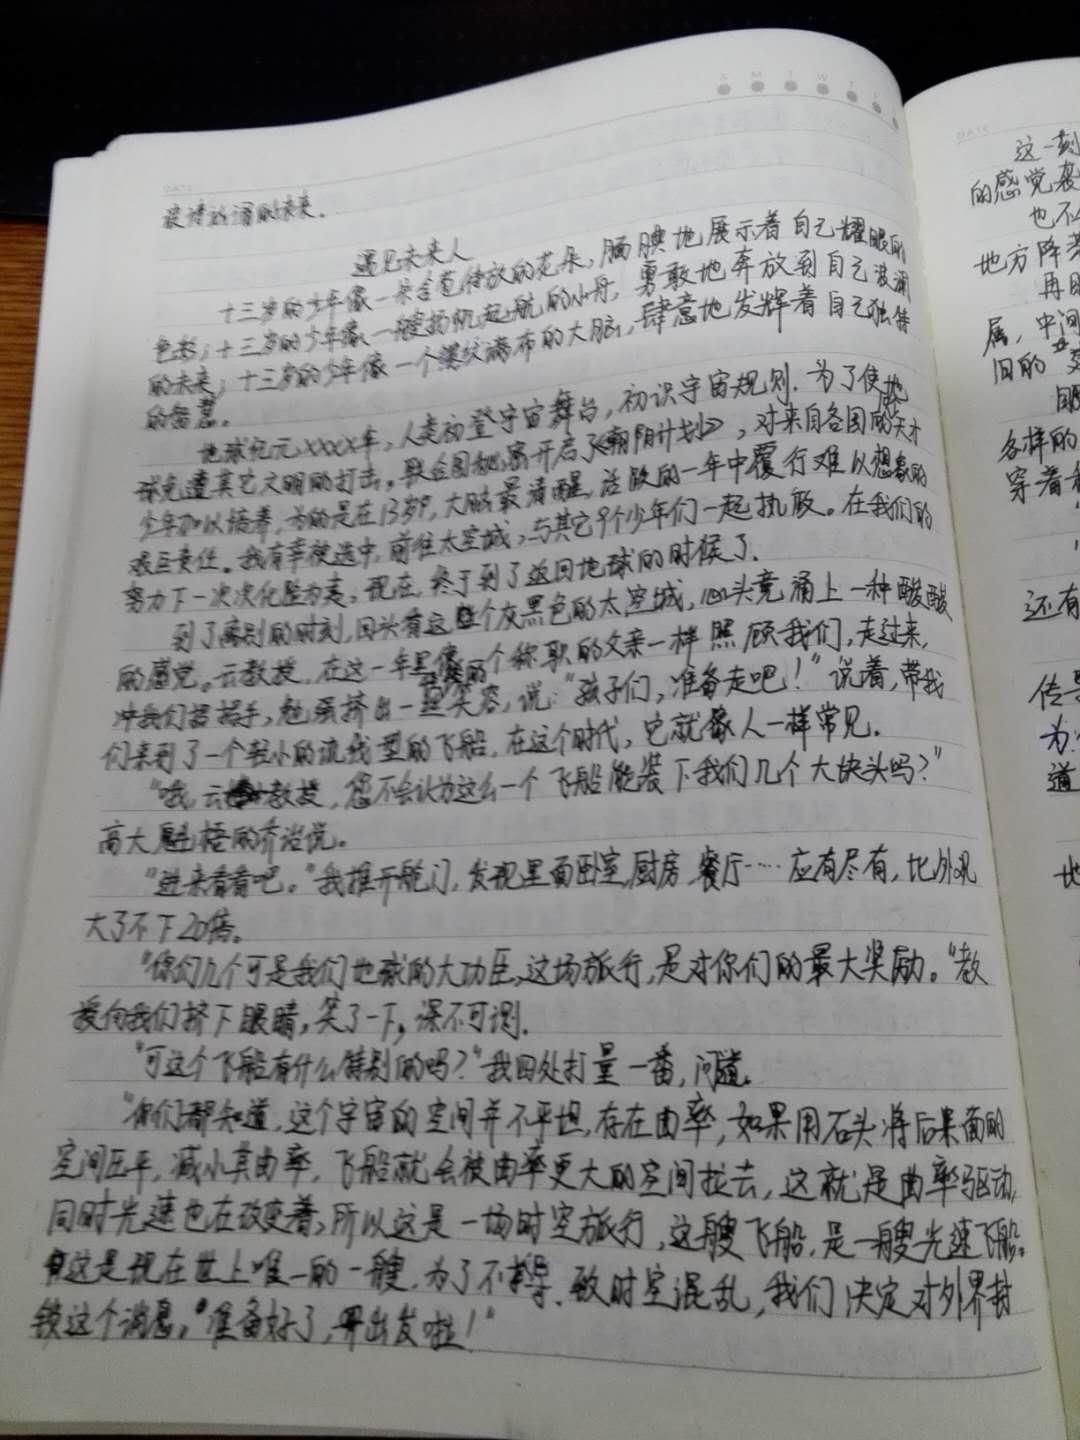 S M T W T F
DATE
的未来。
遇见未来人
十三岁的少年像一朵含苞待放的花朵，腼腆地展示着自己耀眼的
色彩；十三岁的少年像一艘扬帆起航的小舟，勇敢地奔放到自己波澜
的未来；十三岁的少年像一个褶纹满布的大脑，肆意地发辉着自己独特
的智慧。
地球纪元XXXX年，人类初登宇宙舞台，初识宇宙规则．为了使地
球免遭其它文明的打击，联合国秘密开启了《朝阳计划》，对来自各国的天才
少年加以培养，为的是在13岁，大脑最清醒，活跃的一年中履行难以想象的
艰巨责任。我有幸被选中，前往太空城，与其它9个少年们一起执政。在我们的
努力下一次次化险为夷，现在，终于到了返回地球的时候了．
到了离别的时刻，回头看这整个灰黑色的太空城，心头竟涌上一种酸酸
的感觉。云教授，在这一年里像个称职的父亲一样照顾我们，走过来，
冲我们招招手，勉强挤出一丝笑容，说："孩子们，准备走吧！"说着，带我
们来到了一个较小的流线型的飞船，在这个时代，它就像人一样常见．
"哦，云教授，您不会认为这么一个飞船能装下我们几个大块头吗？"
高大魁梧的乔治说。
"进来看看吧。"我推开舱门，发现里面卧室，厨房，餐厅……应有尽有，比外观
大了不下20倍。
"你们几个可是我们地球的大功臣，这场旅行，是对你们的最大奖励。"教
授向我们挤下眼睛，笑了一下，深不可测．
"可这个飞船有什么特别的吗？"我四处打量一番，问道。
"你们都知道，这个宇宙的空间并不平坦，存在曲率，如果用石头将后面的
空间压平，减小其曲率，飞船就会被曲率更大的空间拉去，这就是曲率驱动，
同时光速也在改变着，所以这是一场时空旅行，这艘飞船，是一艘光速飞船。
这是现在世上唯一的一艘，为了不导致时空混乱，我们决定对外界封
锁这个消息。"准备好了，出发啦！"
DATE
这一刻
的感觉袭
也不
地方降落
再
属，中间
旧的
眼
各样的
穿着
还有
传
为
道
地